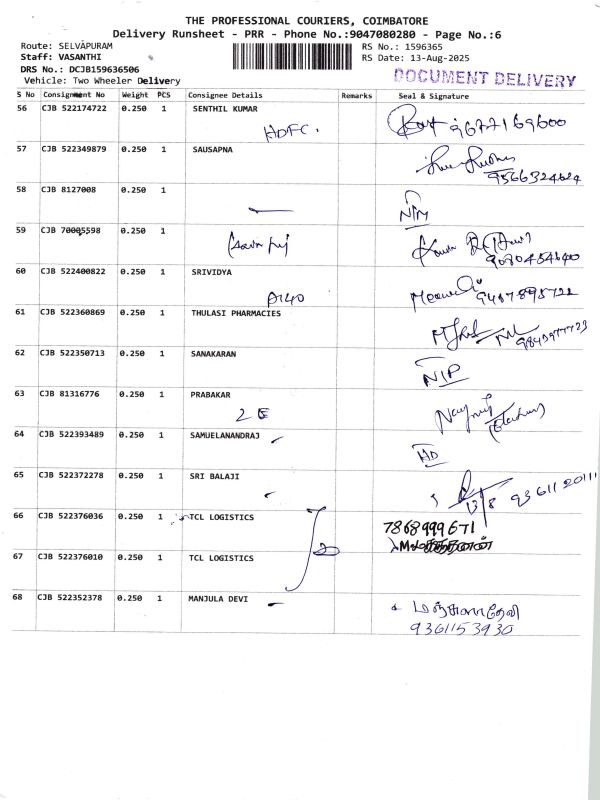 THE PROFESSIONAL COURIERS, COIMBATORE
Delivery Runsheet - PRR - Phone No.:9047080280 - Page No.:6
Route: SELVAPURAM RS No.: 1596365
Staff: VASANTHI RS Date: 13-Aug-2025
DRS No.: DCJB159636506
Vehicle: Two Wheeler Delivery DOCUMENT DELIVERY
S No Consignment No Weight PCS Consignee Details Remarks Seal & Signature
56 CJB 522174722 0.250 1 SENTHIL KUMAR
HDFC. 9677169600
57 CJB 522349879 0.250 1 SAUSAPNA
9566324624
58 CJB 8127008 0.250 1
59 CJB 70005598 0.250 1
9080454640
60 CJB 522400822 0.250 1 SRIVIDYA
A140 9487895722
61 CJB 522360869 0.250 1 THULASI PHARMACIES
9843977723
62 CJB 522350713 0.250 1 SANAKARAN
NIP
63 CJB 81316776 0.250 1 PRABAKAR
64 CJB 522393489 0.250 1 SAMUELANANDRAJ
HD
65 CJB 522372278 0.250 1 SRI BALAJI
13/8 9361120111
66 CJB 522376036 0.250 1 TCL LOGISTICS
7868999671
67 CJB 522376010 0.250 1 TCL LOGISTICS
2
68 CJB 522352378 0.250 1 MANJULA DEVI
மஞ்சுளாதேவி
9361153930